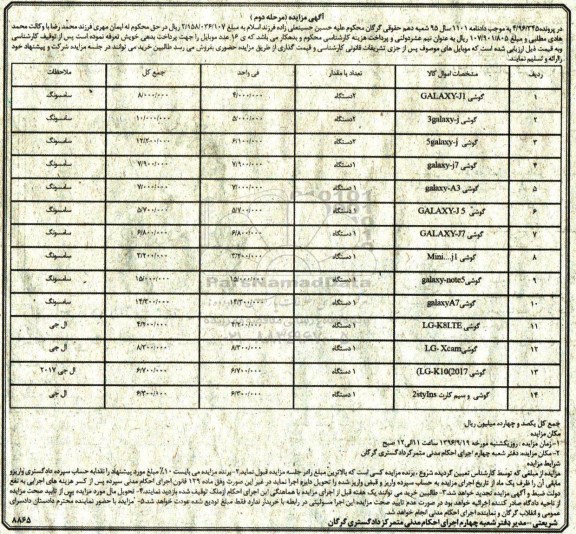 آگهی مزایده (مرحله دوم)
در پرونده ۴/۹۶/۳۲۵ به موجب دادنامه ۱۱۰۱ سال ۹۵ شعبه دهم حقوقی گرگان محکوم علیه حسین حسینعلی زاده فرزند اسلام به مبلغ ۲/۱۵۸/۰۳۶/۱۰۷ ریال در حق محکوم له ایمان مهری فرزند محمد رضا با وکالت محمد
هادی مطانی و مبلغ ۱۰۷/۹۰۱/۸۰۵ ریال به عنوان نیم عشردولتی و پرداخت هزینه کارشناسی محکوم و بدهکار می باشد که ی ۱۶ عدد موبایل را جهت پرداخت بدهی خویش تعرفه نموده است پس از توقیف کارشناسی
وبه قیمت ذیل ارزیابی شده است که موبایل های موصوف پس از جری تشریفات قانونی کارشناسی و قیمت گذاری از طریق مزایده حضوری بفروش می رسد طالبین خرید می توانند در جلسه مزایده شرکت و پیشنهاد خود
را ارائه و تسلیم نمایند.
ردیف مشخصات اموال کالا تعداد یا مقدار فی واحد جمع کل ملاحظات
۱ گوشی GALAXY-J1 ۲دستگاه ۴/۰۰۰/۰۰۰ ۸/۰۰۰/۰۰۰ سامسونگ
۲ گوشی 3galaxy-j ۲دستگاه ۵/۰۰۰/۰۰۰ ۱۰/۰۰۰/۰۰۰ سامسونگ
۳ گوشی 5galaxy-j ۲دستگاه ۶/۱۰۰/۰۰۰ ۱۲/۲۰۰/۰۰۰ سامسونگ
۴ گوشی galaxy-j7 ۱دستگاه ۷/۹۰۰/۰۰۰ ۷/۹۰۰/۰۰۰ سامسونگ
۵ گوشی galaxy-A3 ۱ دستگاه ۷/۰۰۰/۰۰۰ ۷/۰۰۰/۰۰۰ سامسونگ
۶ گوشی GALAXY-J 5 ۱ دستگاه ۵/۷۰۰/۰۰۰ ۵/۷۰۰/۰۰۰ سامسونگ
۷ گوشی GALAXY-J7 ۱ دستگاه ۶/۸۰۰/۰۰۰ ۶/۸۰۰/۰۰۰ سامسونگ
۸ گوشی Mini...j1 ۱ دستگاه ۳/۲۰۰/۰۰۰ ۳/۲۰۰/۰۰۰ سامسونگ
۹ گوشی galaxy-note5 ۱ دستگاه ۱۵/۰۰۰/۰۰۰ ۱۵/۰۰۰/۰۰۰ سامسونگ
۱۰ گوشی galaxyA7 ۱ دستگاه ۱۴/۳۰۰/۰۰۰ ۱۴/۳۰۰/۰۰۰ سامسونگ
۱۱ گوشی LG-K8LTE ۱ دستگاه ۴/۲۰۰/۰۰۰ ۴/۲۰۰/۰۰۰ ال جی
۱۲ گوشی LG- Xcam ۱ دستگاه ۸/۳۰۰/۰۰۰ ۸/۳۰۰/۰۰۰ ال جی
۱۳ گوشی LG-K10(2017) ۱ دستگاه ۶/۷۰۰/۰۰۰ ۶/۷۰۰/۰۰۰ ال جی ۲۰۱۷
۱۴ گوشی و سیم کارت 2istylns ۱ دستگاه ۶/۳۰۰/۰۰۰ ۶/۳۰۰/۰۰۰ ال جی
جمع کل یکصد و چهارده میلیون ریال
مکان مزایده
۱-زمان مزایده : روزیکشنبه مورخه ۱۳۹۶/۹/۱۹ ساعت ۱۱الی۱۲ صبح
۲-مکان مزایده: دفتر شعبه چهارم اجرای احکام مدنی متمرکز دادگستری گرگان
شرایط مزایده
مزایده از مبلغی که توسط کارشناس تعیین گردیده شروع ،برنده مزایده کسی است که بالاترین مبلغ رادر جلسه مزایده قبول نماید.۲-برنده مزایده می بایست ۱۰٪ مبلغ مورد پیشنهاد را نقدا به حساب سپرده دادگستری واریز و
مابقی آن را ظرف یک ماه از تاریخ اجرای مزایده به حساب سپرده واریز و قبض واریز شده را تحویل دایره اجرا نماید در غیر این صورت وفق ماده ۱۲۹ قانون اجرای احکام مدنی سپرده پس از کسر هزینه های اجرایی به نفع
دولت ضبط و آگهی مزایده تجدید خواهد شد.۳-طالبین خرید می توانند یک هفته قبل از اجرای مزایده با هماهنگی این اجرای احکام ازملک توقیف شده بازدید نمایند.۴- تحویل مال مورد مزایده پس از تایید صحت مزایده
از ناحیه دادگاه صادر کننده اجرائیه خواهد بود در صورت عدم تایید صحت مزایده این اجرا مسئولیتی در رابطه با خریدار ندارد فقط مبلغ تودیع شده عودت خواهد شد.۵- مزایده با حضور نماینده محترم دادستان دادسرای
عمومی و انقلاب گرگان و نماینده اجرای احکام مدنی انجام خواهد شد.
شریعتی -مدیر دفتر شعبه چهارم اجرای احکام مدنی متمرکز دادگستری گرگان
۸۸۶۵
ParsNamadData